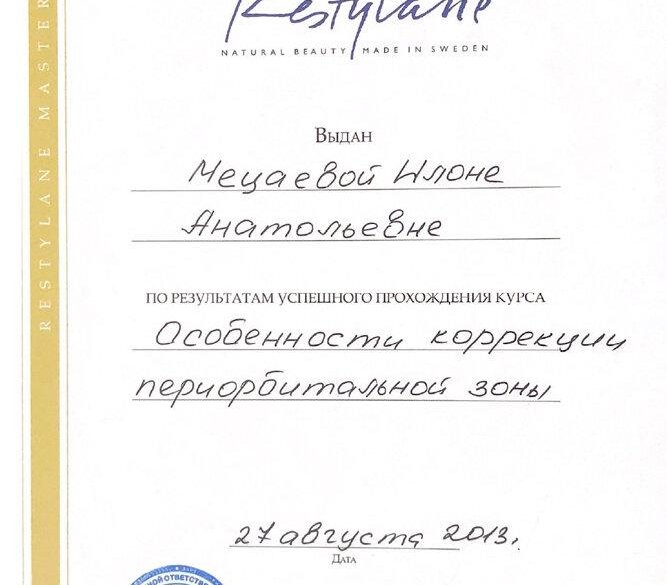 Restylane
NATURAL BEAUTY MADE IN SWEDEN
Выдан
Мецаевой Илоне
Анатольевне
по результатам успешного прохождения курса
Особенности коррекции
периорбитальной зоны
27 августа 2013г.
Дата
RESTYLANE MASTER
НОЙ ОТВЕТСТВЕ